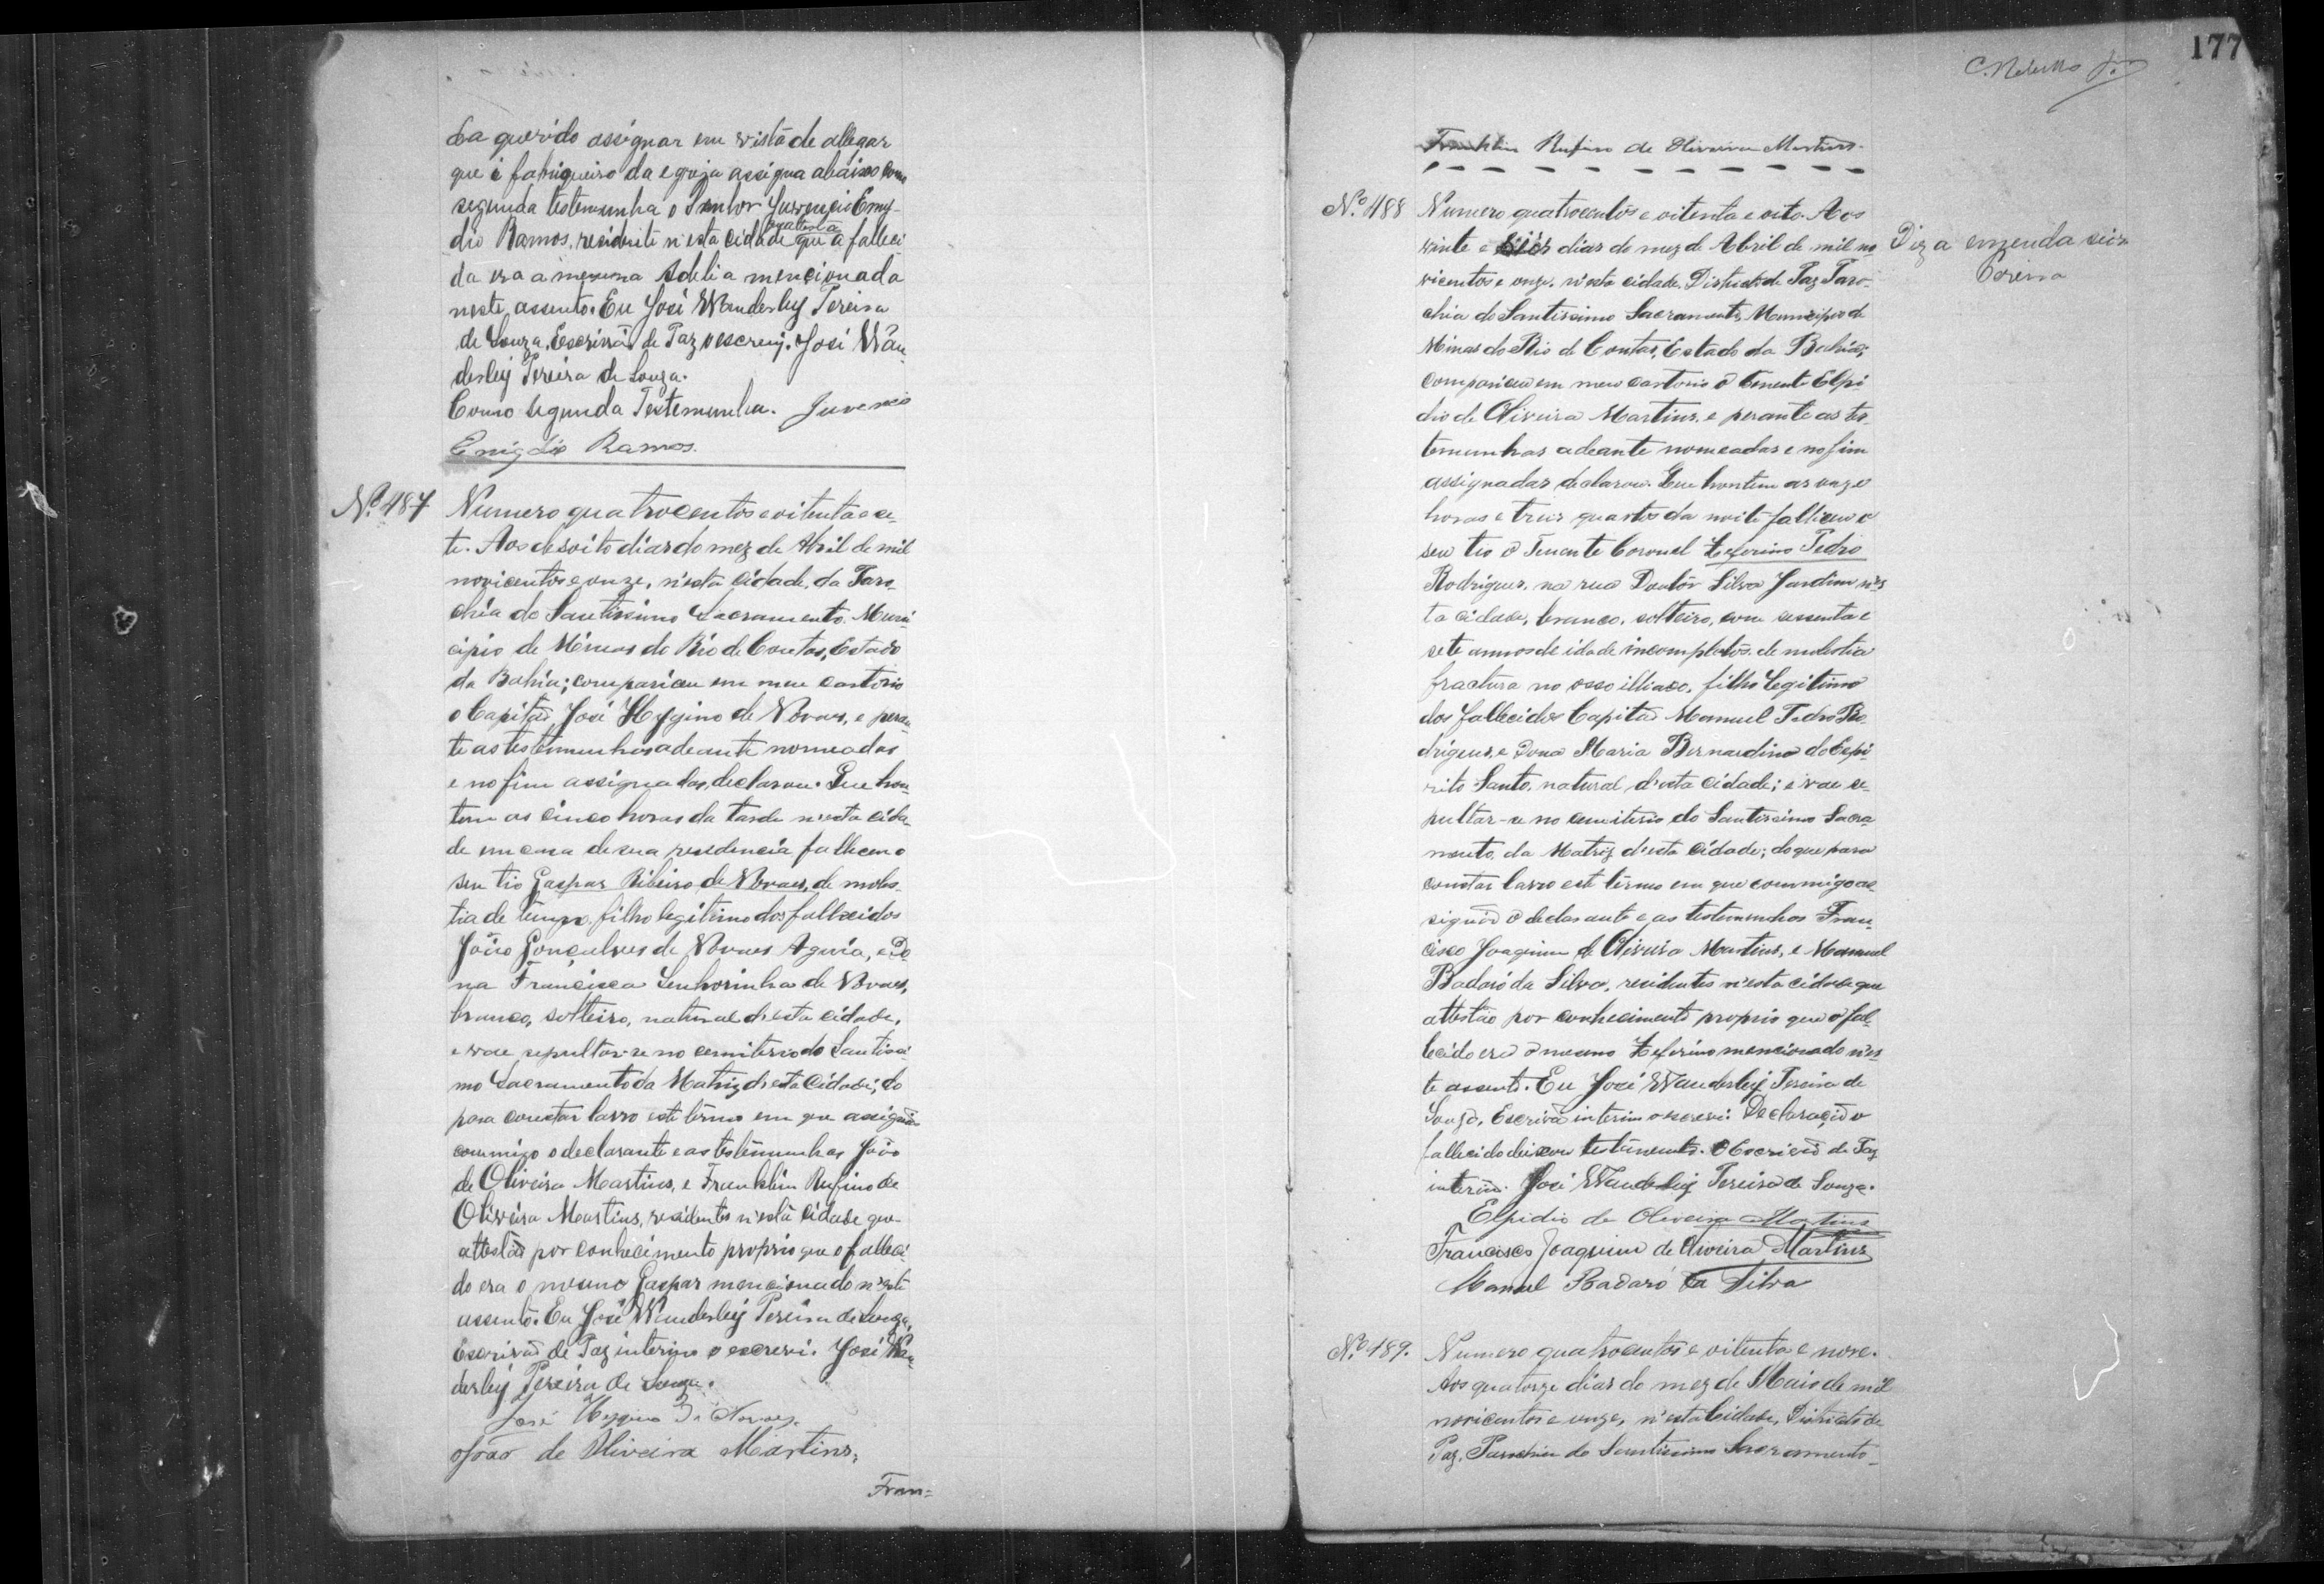 da querido assignar em vista de allegar
que é fabriqueiro da egreja assigna abaixo como
segunda testemunha o Senhor Juvencio Emyg-
dio Ramos, residente n'esta cidade que attesta que a falleci
da era a mesma Adelia mencionada
neste assento. Eu José Wanderley Pereira
de Souza, Escrivão de Paz o escrevy. José Wan
derley Pereira de Souza.
Como segunda Testemunha. Juvencio
Emigdio Ramos.
Nº 487 Numero quatrocentos e oitenta e se-
te. Aos desoito dias do mez de Abril de mil
novicentos e onze, n'esta cidade, da Paro
chia do Santissimo Sacramento, Muni
cipio de Minas do Rio de Contas, Estado
da Bahia; compariceu em meu cartorio
o Capitão José Hygino de Novaes, e peran
te as testemunhas adeante nomeadas
e no fim assignadas, declarou. Que hon
tem as cinco horas da tarde n'esta cida
de em casa de sua residencia falleceu o
seu tio Gaspar Ribeiro de Novaes, de moles-
tia de tempo, filho legitimo dos fallecidos
João Gonçalves de Novaes Aguia, e Do
na Francisca Senhorinha de Novaes,
branco, solteiro, natural d'esta cidade,
e vae sepultar-se no cemiterio do Santissi
mo Sacramento da Matriz d'esta Cidade; do
para constar lavro este têrmo em que assignão
commigo o declarante e as testemunhas João
de Oliveira Martins, e Franklin Rufino de
Oliveira Martins, residentes n'esta cidade que
attestão por conhecimento proprio que o falleci
do era o mesmo Gaspar mencionado n'este
assento. Eu José Wanderley Pereira de Souza,
Escrivão de Paz interino o escrevi. José Wan
derley Pereira de Souza.
José Hygino de Novaes.
João de Oliveira Martins,
Fran=
177
Franklin Rufino de Oliveira Martins.
Nº 488 Numero quatrocentos e oitenta e oito. Aos
vinte e seis dias do mez de Abril de mil no
vicentos e onze, n'esta cidade, Districto de Paz Paro-
chia do Santissimo Sacramento, Municipio de
Minas do Rio de Contas, Estado da Bahia;
compariceu em meu cartorio o Tenente Elpi
dio de Oliveira Martins, e perante as tes
temunhas adeante nomeadas e no fim
assignadas declarou. Que hontem as onze
horas e treis quartos da noite falliceu o
seu tio o Tenente Coronel Zeferino Pedro
Rodrigues, na rua Doutor Silva Jardim n'es
ta cidade, branco, solteiro, com sessenta e
sete annos de idade incompletos, de molestia
fractura no osso illiaco, filho legitimo
dos fallecidos Capitão Manuel Pedro Ro
drigues, e Dona Maria Bernardina do Espi
rito Santo, natural d'esta cidade; e vae se-
pultar-se no cemiterio do Santissimo Sacra
mento, da Matriz d'esta Cidade; do que para
constar lavro este têrmo em que commigo as-
signão o declarante e as testemunhas Fran-
cisco Joaquim de Oliveira Martins, e Manuel
Badaró da Silva, residentes n'esta cidade que
attestão por conhecimento proprio que o fal
lecido era o mesmo Zeferino mencionado n'es
te assento. Eu José Wanderley Pereira de
Souza, Escrivão interino o escrevi. Declaração o
fallecido deixou testamento. O Escrivão de Paz
interino. José Wanderley Pereira de Souza.
Elpidio de Oliveira Martins
Francisco Joaquim de Oliveira Martins
Manuel Badaró da Silva
Diz a emenda seis
Pereira
Nº 489. Numero quatrocentos e oitenta e nove.
Aos quatorze dias do mez de Maio de mil
novicentos e onze, n'esta Cidade, Districto de
Paz, Parochia do Santissimo Sacramento